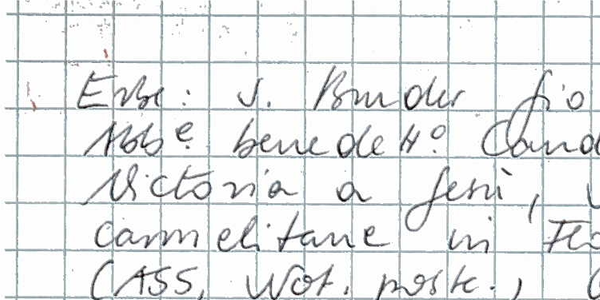 Erbe: s. Bruder fio
Abbe. benedetto. Cand
Victoria a Jesù,
carmelitane in Flo
(ASS, Not. postc.,